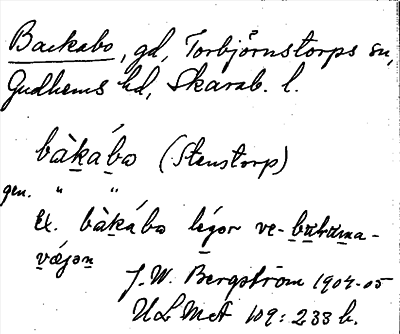 Backabo, gd, Torbjörnstorps sn,
Gudhems hd, Skarab. l.
bàkábo (Stenstorp)
gen. " "
Ex. bàkábo légor ve-
J. W. Bergström 1904-05
ULMA 109: 233 b.